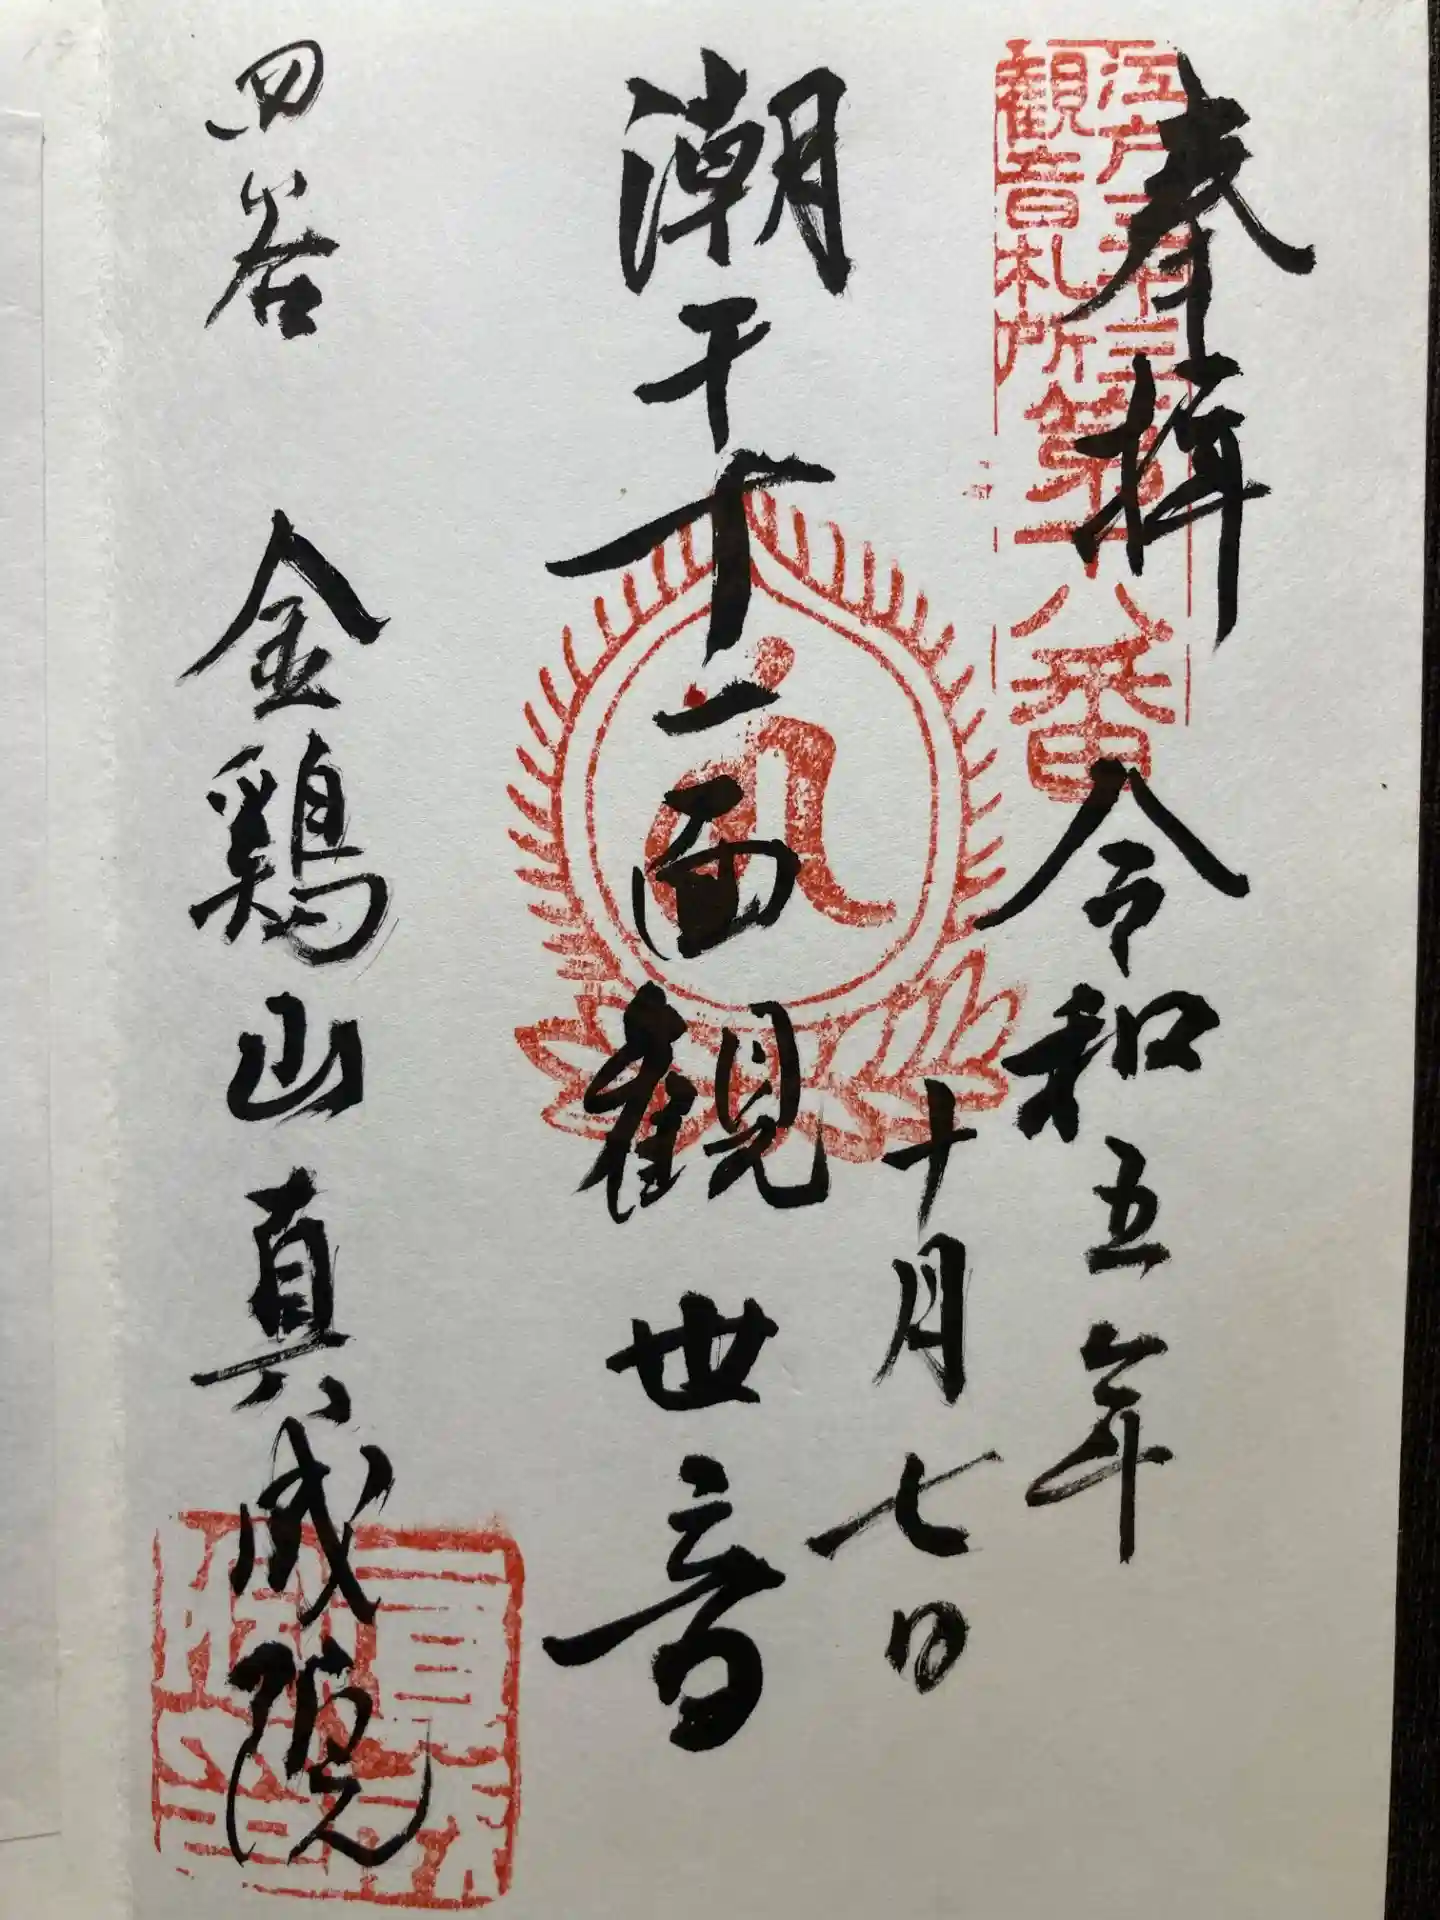 奉拝
令和五年
十月七日
江戸三十三
観音札所
第十八番
潮干十一面観世音
四谷 金鶏山真成院